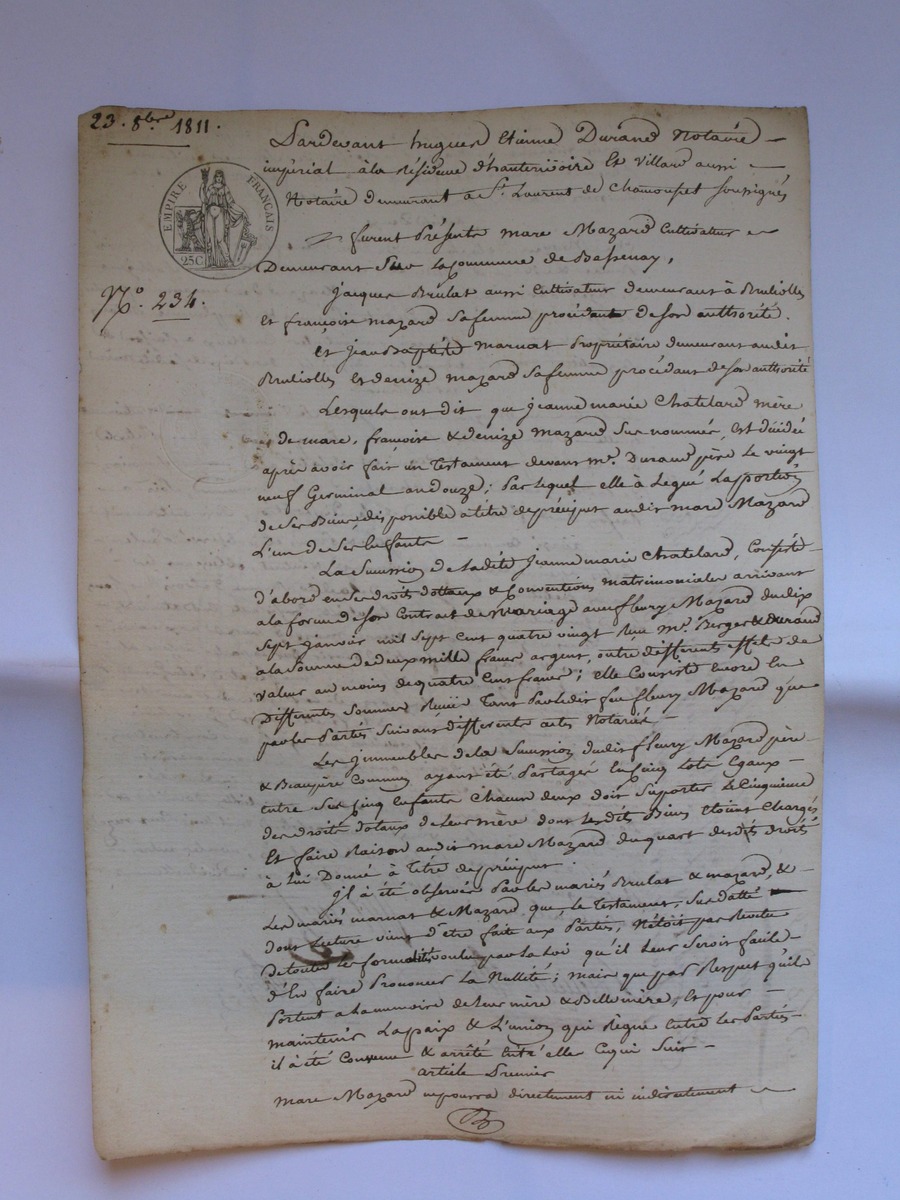 23. 8bre 1811.
EMPIRE FRANÇAIS
25C
No. 234.
Pardevant hugues Etienne Durand Notaire
impérial à la Résidence d'hauterivoire Et Villard aussi
Notaire demeurant a St. Laurent de Chamousset soussignés
furent Présents marc Mazard Cultivateur
Demeurant Sur la Commune de Bessenay,
Jacques Brulat aussi Cultivateur demeurant à Brulioles
Et françoise mazard Sa femme procédante de Son authorité.
Et Jean Baptiste marnat Propriétaire demeurant audit
Brulioles Et denize mazard Sa femme procédant de Son authorité
Lesquels ont dit que Jeanne marie Chatelard mère
de marc, françoise & denize mazard Sus nommés, Est décédée
après avoir fait un Testament devant Me. Durand père Le vingt
neuf Germinal an douze; Par Lequel elle à Légué La portion
de Ses Biens disponible a titre de préciput audit marc Mazard
L'un de Ses Enfants
La Succession de Ladite Jeanne marie Chatelard, Consiste
d'abord en Ses droits dottaux & Conventions matrimoniales arrivant
a la forme de Son Contrat de Mariage avec fleury Mazard du dix
Sept janvier mil Sept Cent quatre vingt Reçu Me. Berger & Durand
a la Somme de deux mille francs argent, outre differents effets de
valeur au moins de quatre Cent francs; elle Consiste encore En
Differentes Sommes Tant Par Ledit feu fleury Mazard que
par les Parties Suivant differents actes Notariés
Les Immeubles de la Succession dudit fleury Mazard père
& Beaupère Commun ayant été Partagés En Cinq Lots Egaux
Entre Ses Cinq Enfants Chacun deux doit Suporter Le Cinquieme
des droits dotaux de Leur mère dont Les dits Biens Etoient Chargés
Et faire Raison audit marc Mazard du quart des dits droits
à Lui Donné à Titre de préciput.
Il à été observé Par Les mariés Brulat & mazard, &
Les mariés marnat & Mazard que, Le Testament, Sus datté
dont Lecture vient d'être faite aux Parties, N'étoit pas Revetu
de toutes Les formalités voulues par La Loi qu'il Leur Seroit facile
d'En faire Prononcer La Nullité; mais que par Respect qu'ils
Portent a La memoire de Leur mère & Belle mère, Et pour
maintenir La paix & L'union qui Regne Entre Les Parties
il à été Convenu & arrêté Entr'elles Ce qui Suit
article Premier
Marc Mazard ne pourra directement ni indirectement